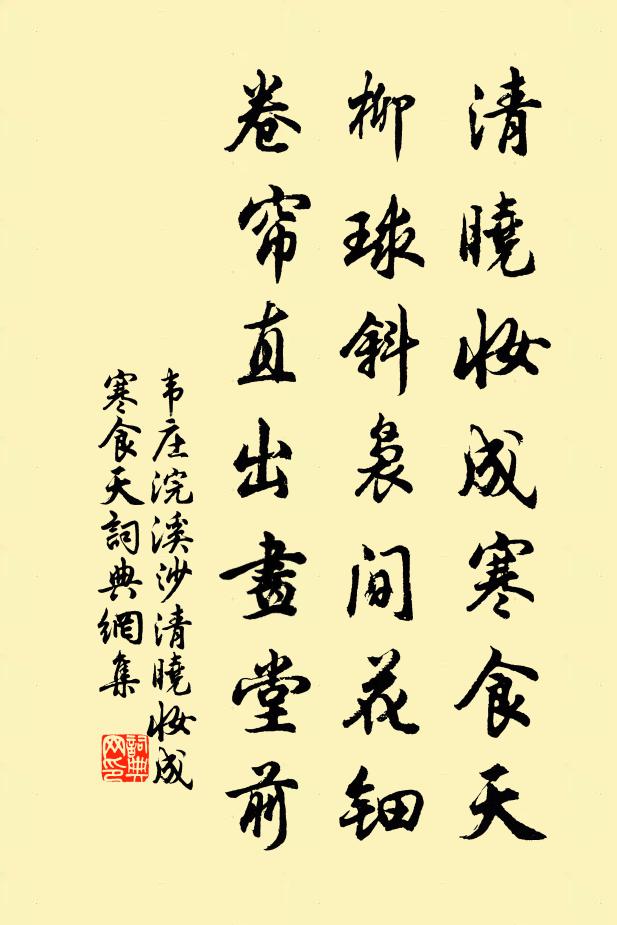 清曉妝成寒食天
柳球斜裊間花鈿
卷帘直出畫堂前
韦庄浣溪沙清曉妝成
寒食天詞典網集
詞典
网印